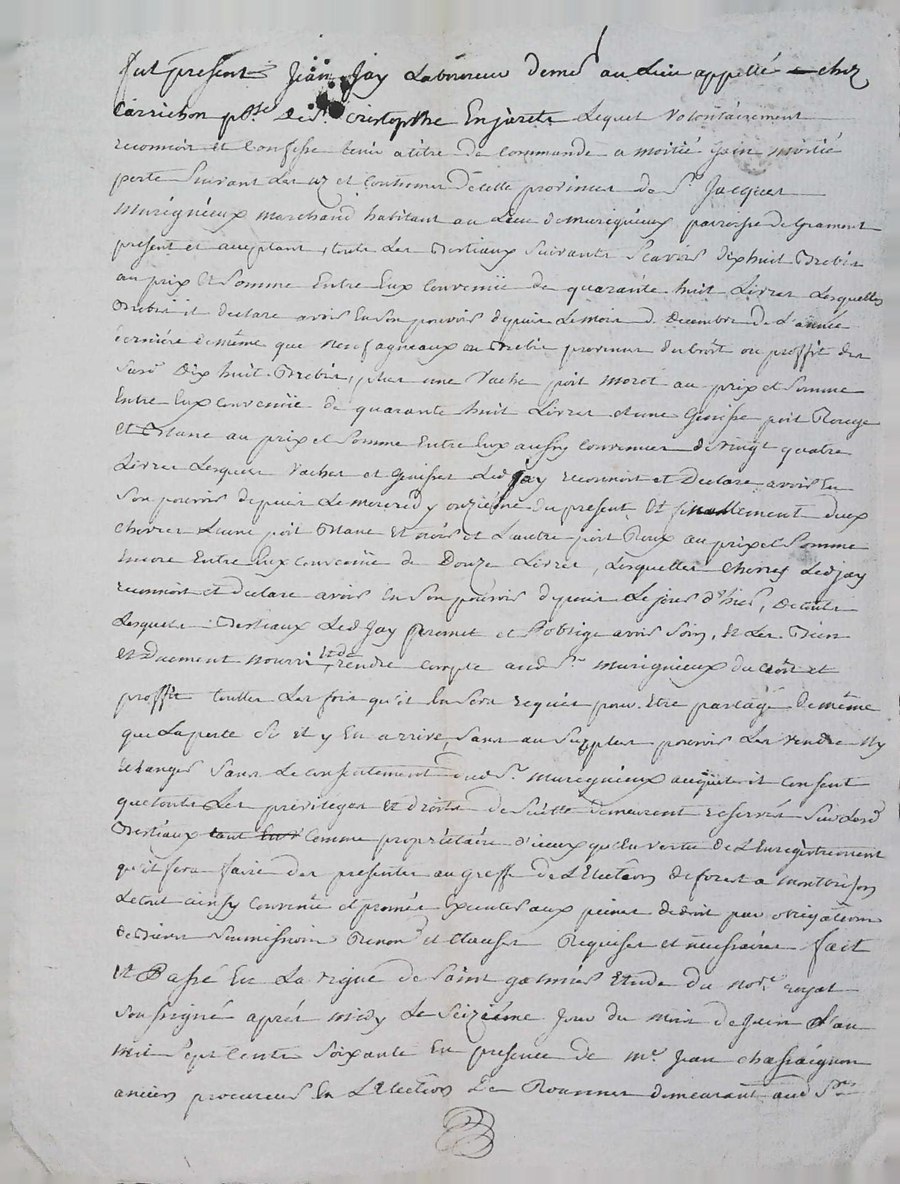 fut present Jean Jay Laboureur demt au Lieu appellé chez
Carrichon psse de st. Cristophe En Jarets Lequel Volontairement
reconnoit et Confesse tenir a titre de Commande a moitié gain moitié
perte Suivant Les uz et Coutumes de cette province de Sr. Jacques
Murigneux marchand habitant au Lieu de murigneux parroisse de Grament
present et acceptant, toute Les Bestiaux Suivants Scavoir dixhuit Brebis
au prix et Somme Entre Eux Convenüe de quarante huit Livres Lesquelles
Brebis il declare avoir En Son pouvoir depuis Le mois de Decembre de L'année
derniere de même que neuf agneaux ou Brebis provenus du croit ou proffit des
Susd. Dix huit Brebis, plus une Vache poil moret au prix et Somme
Entre Eux Convenüe de quarante huit Livres et une Genisse poil Rouge
et Blanc au prix et Somme Entre Eux aussy Convenues de vingt quatre
Livres Lesquels vaches et Genisses Led Jay reconnoit et Declare avoir En
Son pouvoir depuis Le mercredy onzieme du present Et finallement deux
chevres L'une poil Blanc et noir et L'autre poil Roux au prix et Somme
Encore Entre Eux Convenüe de Douze Livres, Lesquelles chevres Led jay
reconnoit et declare avoir En Son pouvoir depuis Le jour d'hier, De toute
Lesquels Bestiaux Led Jay promet et s'oblige avoir Soin, et Les Bien
et Duement nourrir et de rendre Compte aud Sr. murigneux du croit et
proffit touttes Les fois qu'il En Sera requis pour Etre partagé De même
que La perte Si il y En arrive, Sans au Surplus pouvoir Les vendre Ny
Echanger Sans Le Consentement dud Sr. Murigneux auquel il Consent
que touts Les privileges et droits de Suitte demeurent reservés Sur Lesd
Bestiaux tant Sur Comme proprietaire d'iceux qu'En vertu de L'Enregistrement
qu'il fera faire des presentes au greffe de L'Election de forest a montbrison
Le tout ainsy Convenu et promis Executer aux peines de droit par obligation
de Biens Soumissions Renond et Clauses Requises et necessaires fait
et Passé En La vigne de Saint galmier Etude du Nore. royal
Soussigné après midy Le Seizieme Jour du mois de Juin L'an
mil Sept Cents Soixante En presence de me. Jean chassaignon
ancien procureur En L'Election De Roannes demeurant aud St